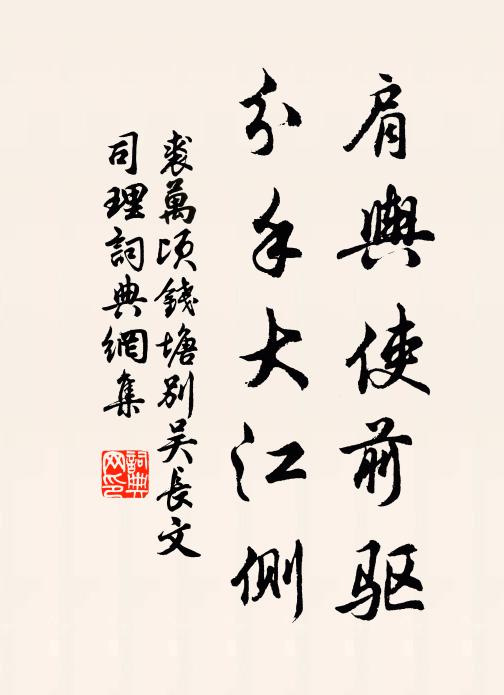 肩輿使前驱
分手大江側
裘萬頃錢塘別吴長文
司理詞典網集
詞典网印